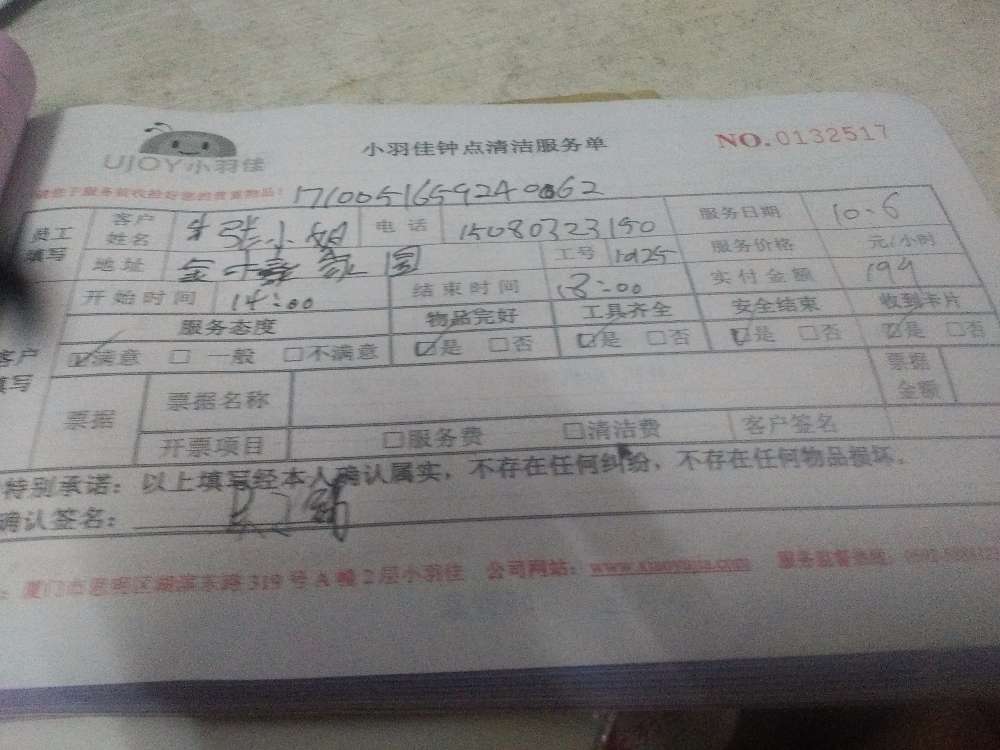 UJOY小羽佳
小羽佳钟点清洁服务单
NO.0132517
1710051659240062
员工填写 客户姓名 张小姐 电话 15080323150 服务日期 10.6
地址 家园 工号 1025 服务价格 元/小时
开始时间 14:00 结束时间 18:00 实付金额 194
客户填写 服务态度 物品完好 工具齐全 安全结束 收到卡片
☑满意 □ 一般 □不满意 ☑是 □否 ☑是 □否 ☑是 □否 ☑是 □否
票据 票据名称 票据金额
开票项目 □服务费 □清洁费 客户签名
特别承诺：以上填写经本人确认属实，不存在任何纠纷，不存在任何物品损坏。
确认签名：
厦门市思明区湖滨东路319号A幢2层小羽佳 公司网站：www.xiaoyujia.com 服务监督热线：